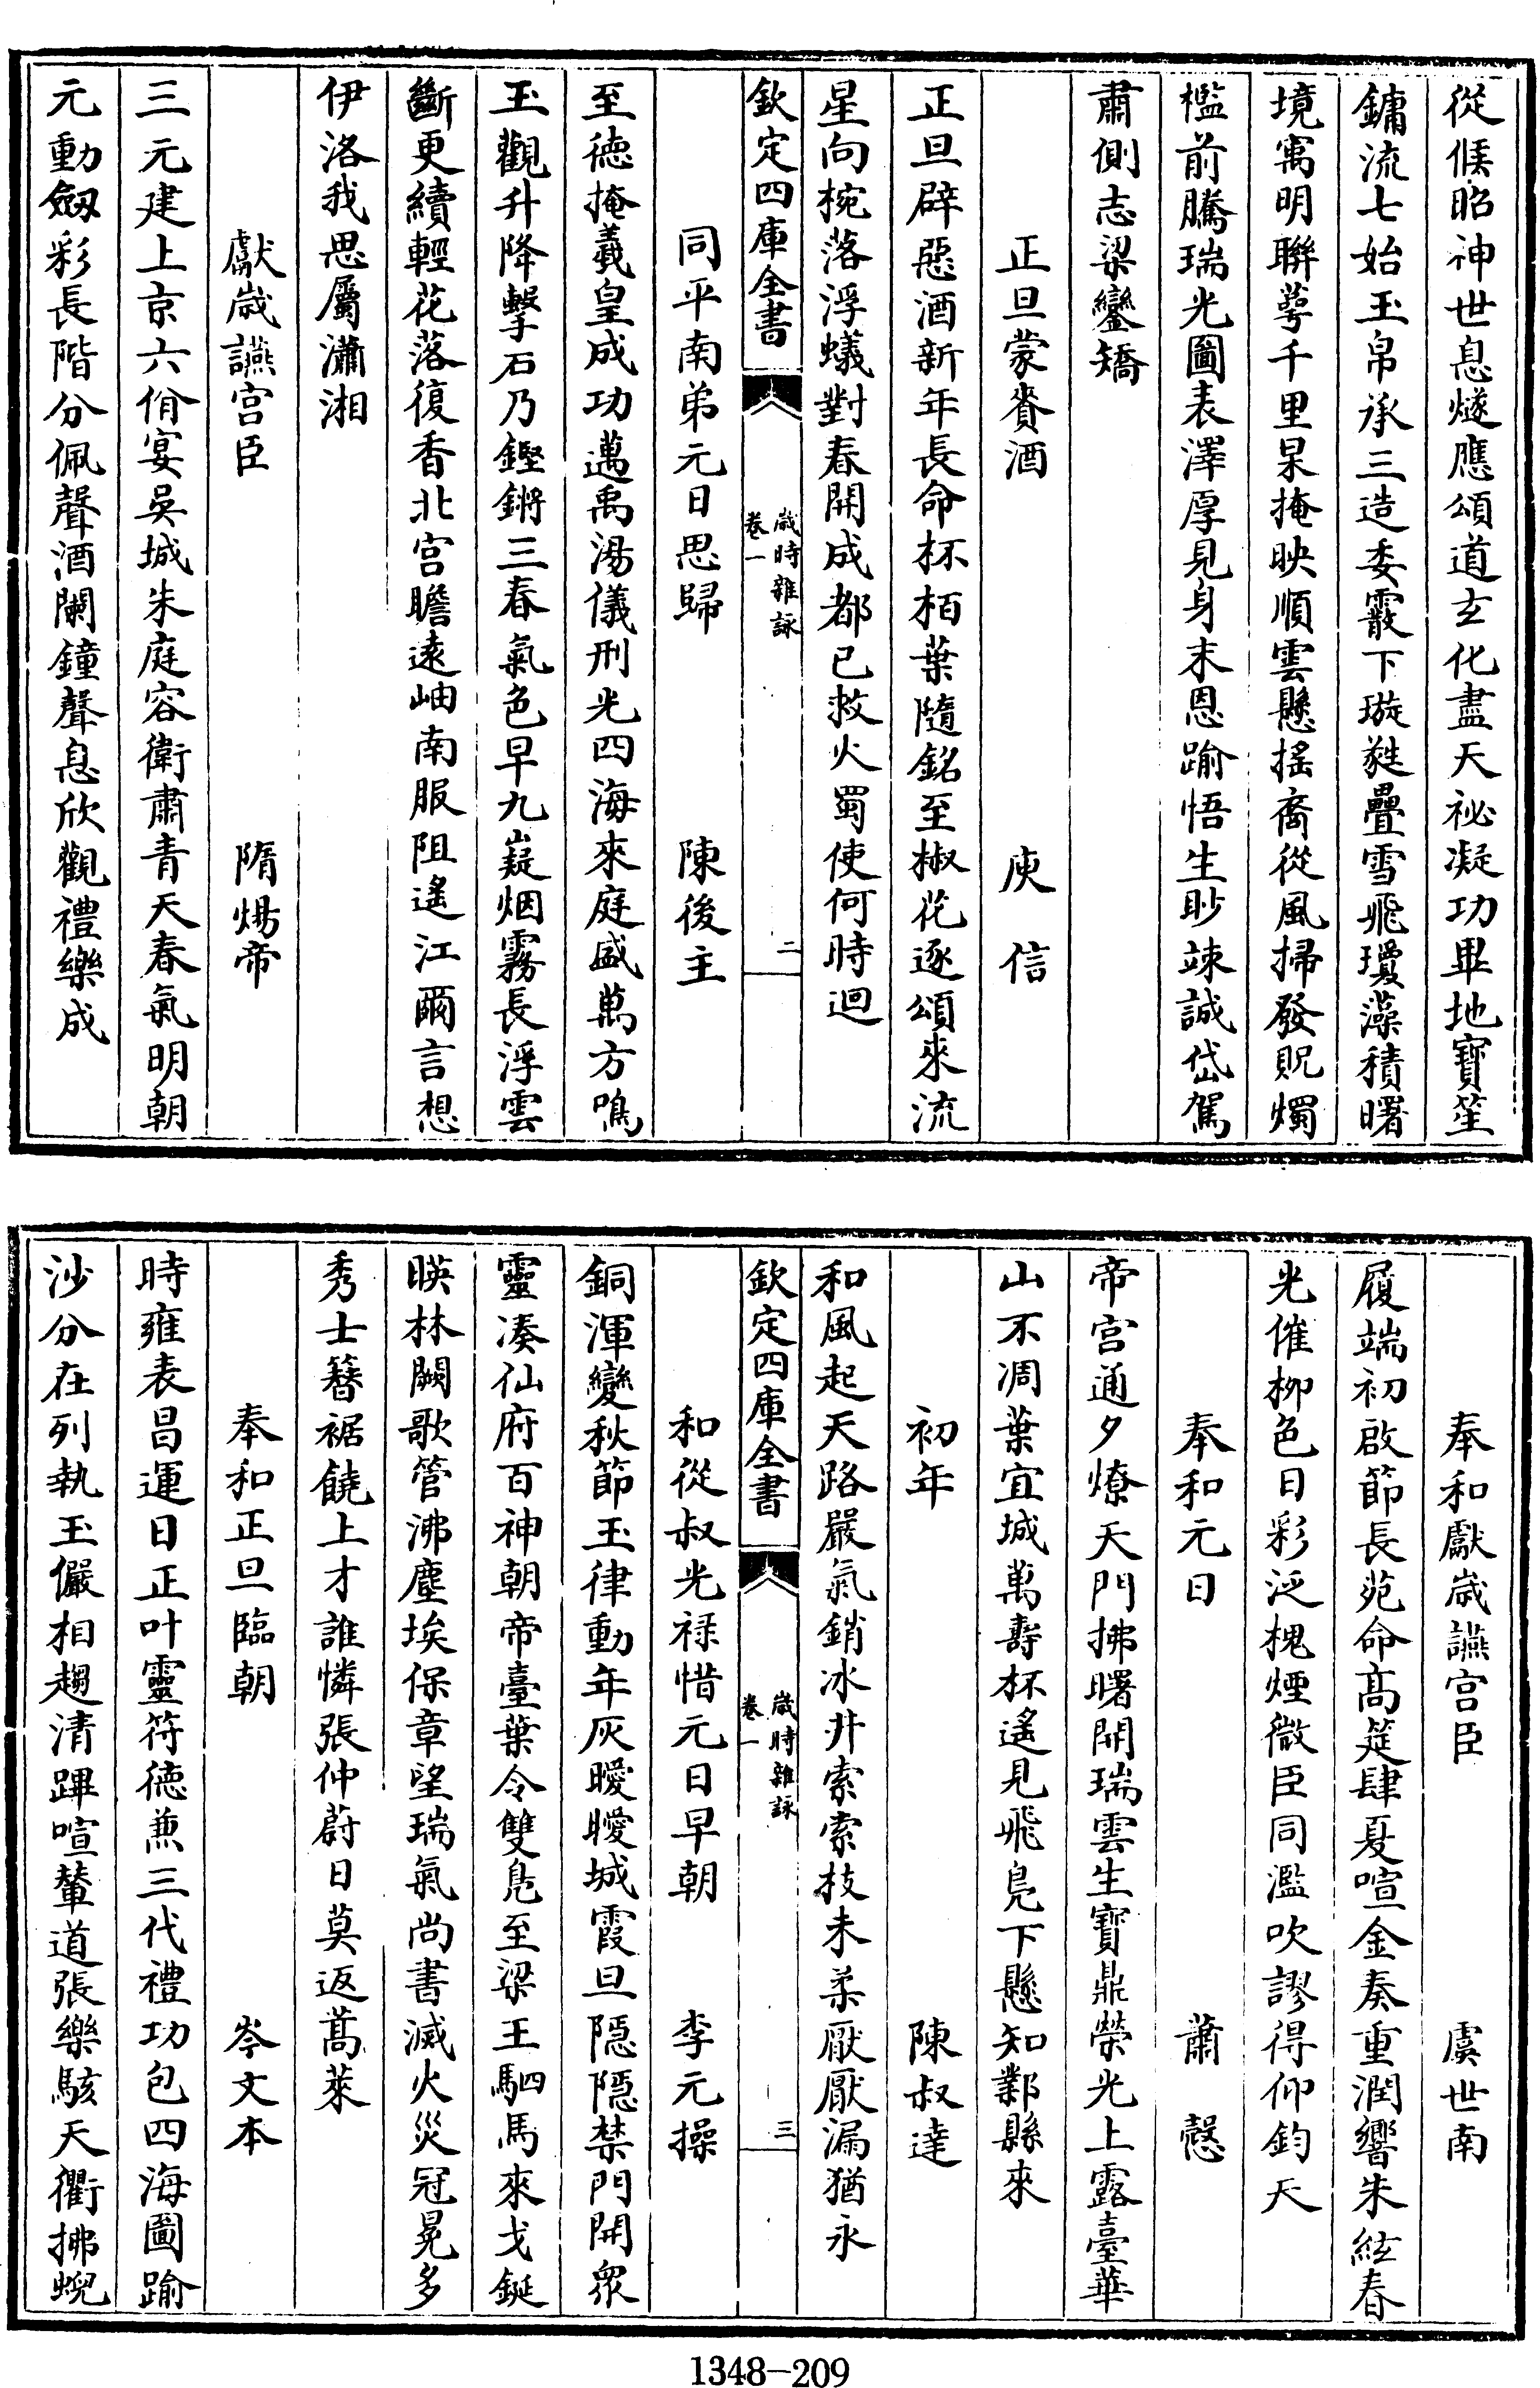 從候昭神世息燧應頌道玄化盡天祕凝功畢地寶笙
鏞流七始玉帛承三造委霰下璇蕤疊雪飛瓊藻積曙
境寓明聯萼千里杲掩映順雲懸搖裔從風掃發貺燭
檻前騰瑞光圖表澤厚見身末恩踰悟生眇竦誠岱駕
肅側志梁鑾矯
正旦蒙賚酒 庾信
正旦辟惡酒新年長命杯栢葉隨銘至椒花逐頌來流
星向椀落浮蟻對春開成都已救火蜀使何時迴
欽定四庫全書 歲時雜詠 卷一 二
同平南弟元日思歸 陳後主
至德掩羲皇成功邁禹湯儀刑光四海來庭盛萬方鳴
玉觀升降擊石乃鏗鏘三春氣色早九嶷烟霧長浮雲
斷更續輕花落復香北宫瞻遠岫南服阻遙江爾言想
伊洛我思屬瀟湘
獻歲讌宫臣 隋煬帝
三元建上京六佾宴吳城朱庭容衛肅青天春氣明朝
元動劔彩長階分佩聲酒闌鐘聲息欣觀禮樂成
奉和獻歲讌宫臣 虞世南
履端初啟節長苑命高筵肆夏喧金奏重潤響朱絃春
光催栁色日彩泛槐煙微臣同濫吹謬得仰鈞天
奉和元日 蕭慤
帝宫通夕燎天門拂曙開瑞雲生寶鼎榮光上露臺華
山不凋葉宜城萬壽杯遙見飛鳧下懸知鄴縣來
初年 陳叔達
和風起天路嚴氣銷冰井索索枝未柔厭厭漏猶永
欽定四庫全書 歲時雜詠 卷一 三
和從叔光祿惜元日早朝 李元操
銅渾變秋節玉律動年灰曖曖城霞旦隱隱禁門開眾
靈湊仙府百神朝帝臺葉令雙鳧至梁王駟馬來戈鋋
暎林闕歌管沸塵埃保章望瑞氣尚書滅火災冠冕多
秀士簪裾饒上才誰憐張仲蔚日莫返蒿萊
奉和正旦臨朝 岑文本
時雍表昌運日正叶靈符德兼三代禮功包四海圖踰
沙分在列執玉儼相趨清蹕喧輦道張樂駭天衢拂蜺
1348-209